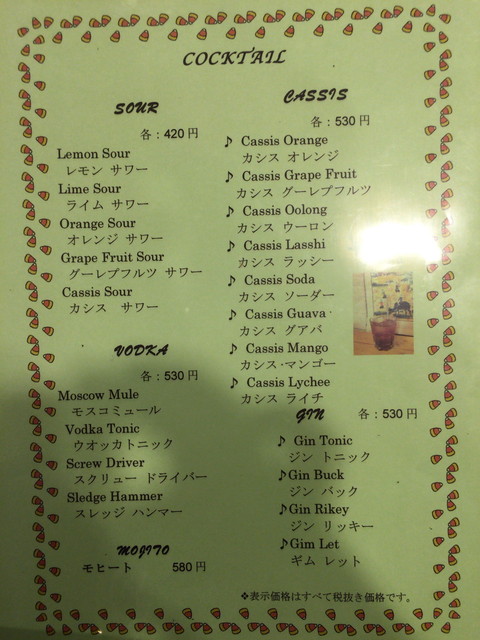 COCKTAIL
SOUR
各：420円
Lemon Sour
レモン サワー
Lime Sour
ライム サワー
Orange Sour
オレンジ サワー
Grape Fruit Sour
グーレプフルツ サワー
Cassis Sour
カシス サワー
VODKA
各：530円
Moscow Mule
モスコミュール
Vodka Tonic
ウオッカトニック
Screw Driver
スクリュー ドライバー
Sledge Hammer
スレッジ ハンマー
MOJITO
モヒート 580円
CASSIS
各：530円
♪ Cassis Orange
カシス オレンジ
♪ Cassis Grape Fruit
カシス グーレプフルツ
♪ Cassis Oolong
カシス ウーロン
♪ Cassis Lasshi
カシス ラッシー
♪ Cassis Soda
カシス ソーダー
♪ Cassis Guava
カシス グアバ
♪ Cassis Mango
カシス・マンゴー
♪ Cassis Lychee
カシス ライチ
GIN 各：530円
♪ Gin Tonic
ジン トニック
♪Gin Buck
ジン バック
♪Gin Rikey
ジン リッキー
♪Gim Let
ギム レット
❖表示価格はすべて税抜き価格です。